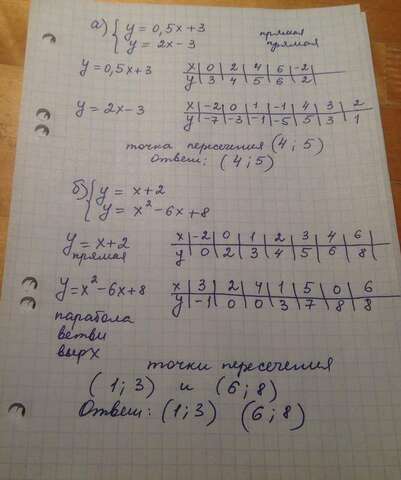 а) { y = 0,5x+3 прямая
y = 2x-3 прямая
y=0,5x+3 x | 0 | 2 | 4 | 6 | -2
y | 3 | 4 | 5 | 6 | 2
y = 2x-3 x | -2 | 0 | 1 | -1 | 4 | 3 | 2
y | -7 | -3 | -1 | -5 | 5 | 3 | 1
точка пересечения (4; 5)
Ответ: (4; 5)
б) { y = x+2
y = x²-6x+8
y = x+2 x | -2 | 0 | 1 | 2 | 3 | 4 | 6
прямая y | 0 | 2 | 3 | 4 | 5 | 6 | 8
y = x²-6x+8 x | 3 | 2 | 4 | 1 | 5 | 0 | 6
y | -1 | 0 | 0 | 3 | 7 | 8 | 8
парабола
ветви
вырх
точки пересечения
(1; 3) и (6; 8)
Ответ: (1; 3) (6; 8)